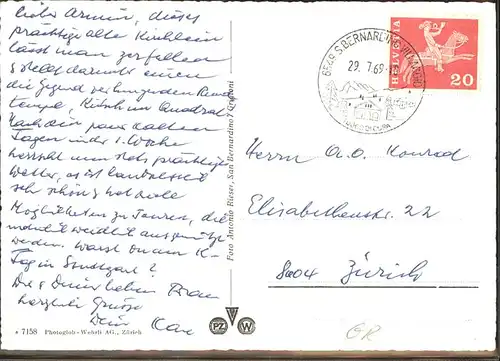 Lieber Armin, dieses
prächtige alte Kirchlein
lässt man zerfallen
& stellt darunter einen
die Gegend verhunzenden Rund
tempel, Kitsch im Quadrat.
Nach ein paar kalten
Tagen in der 1. Woche
herrscht nun stets prächtiges
Wetter, es ist landschaftlich
sehr schön & hat viele
Möglichkeiten zu Touren, die
weidlich ausgenützt
werden. Warst Du am
Tag in Stuttgart?
Dir & Deiner lieben Frau
herzliche Grüsse
Dein
* 7158 Photoglob-Wehrli AG., Zürich
Foto Antonio Risser, San Bernardino / Grigioni
PZ W
6549 S. BERNARDINO
29. 7.69
HELVETIA
20
Herrn A. O. Konrad
Elisabethenstr. 22
8004 Zürich
GR